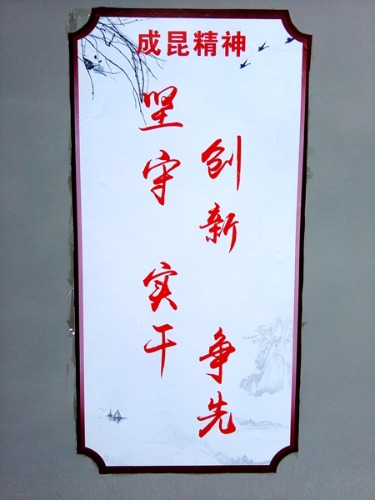 成昆精神
坚守 实干
创新 争先